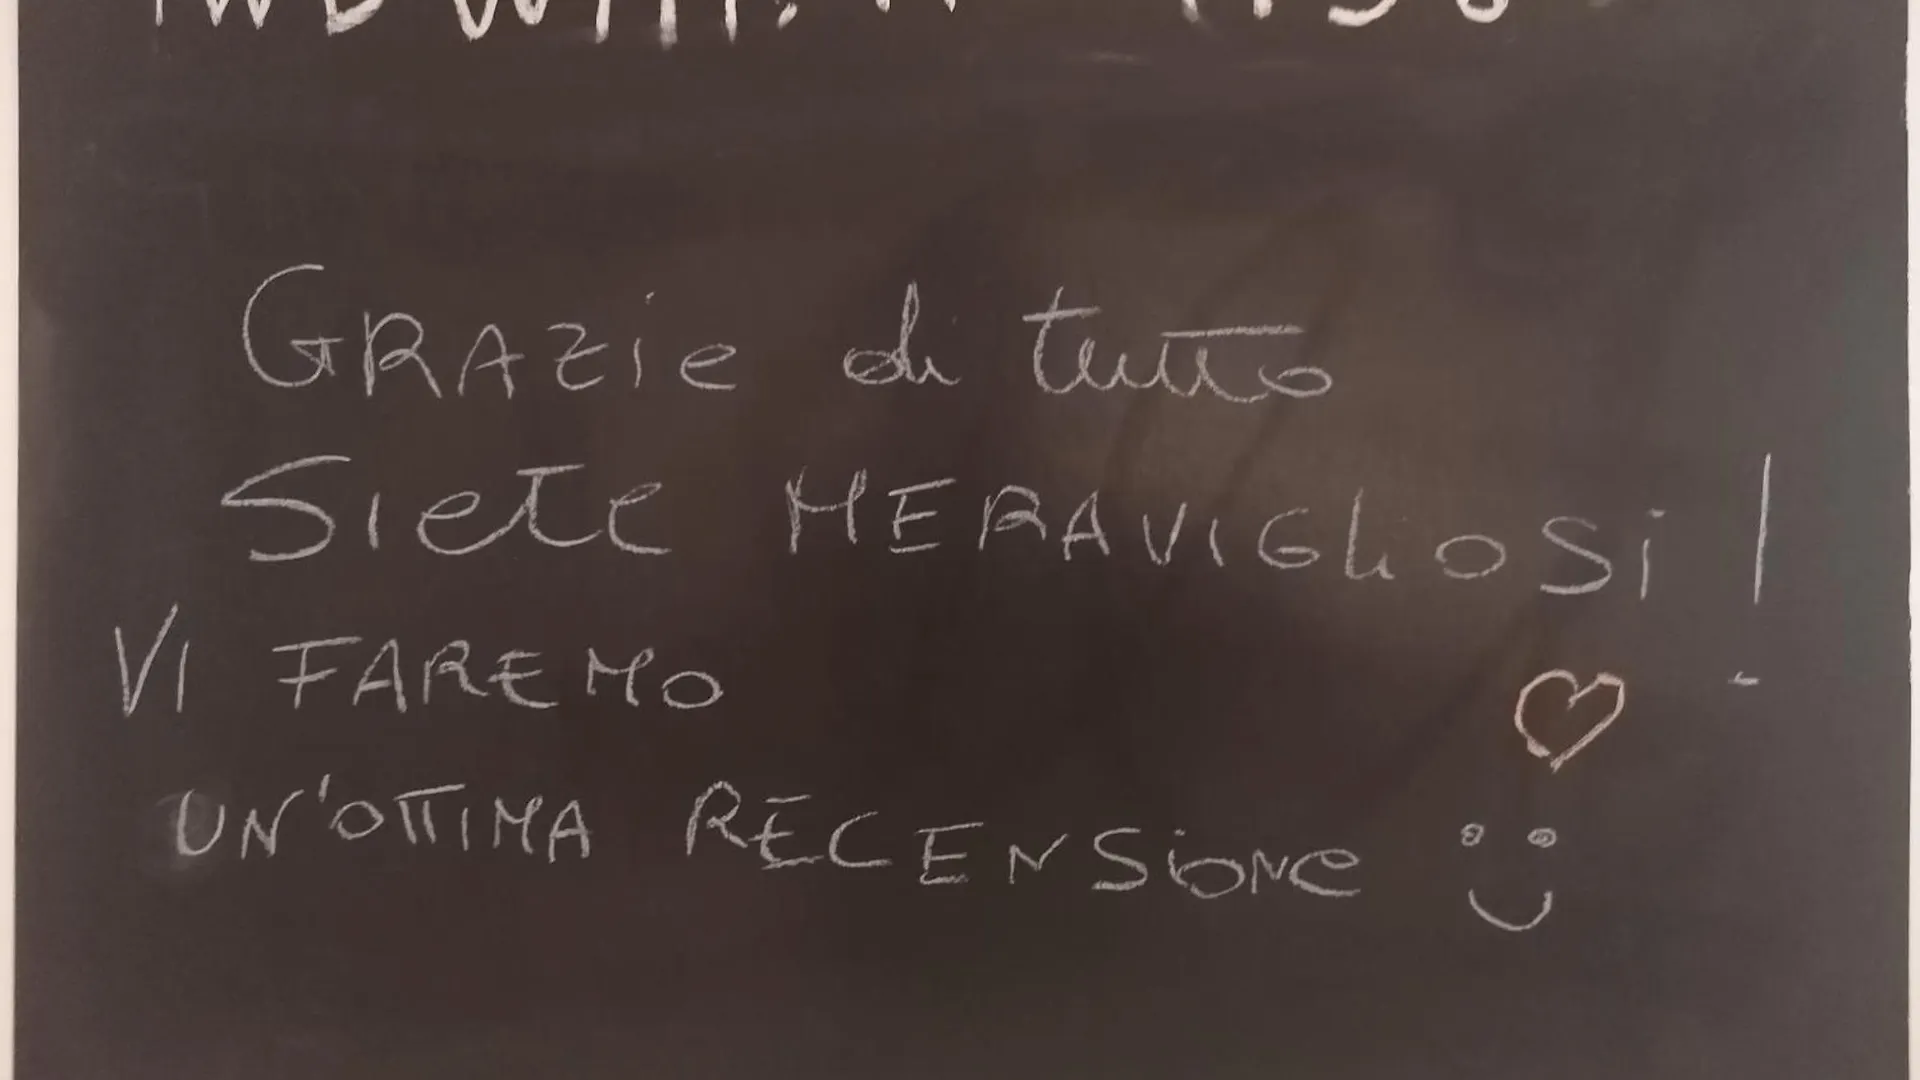 GRAZie di tutto
Siete MERAVIGliOSi !
VI FAREMO
UN'OTTIMA RECENSione